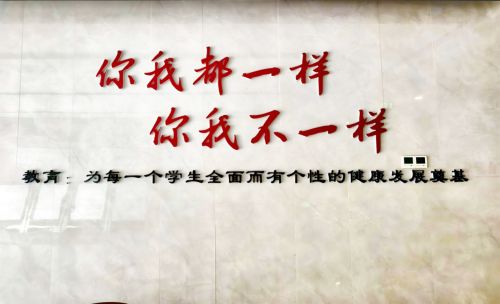 你我都一样
你我不一样
教育：为每一个学生全面而有个性的健康发展奠基